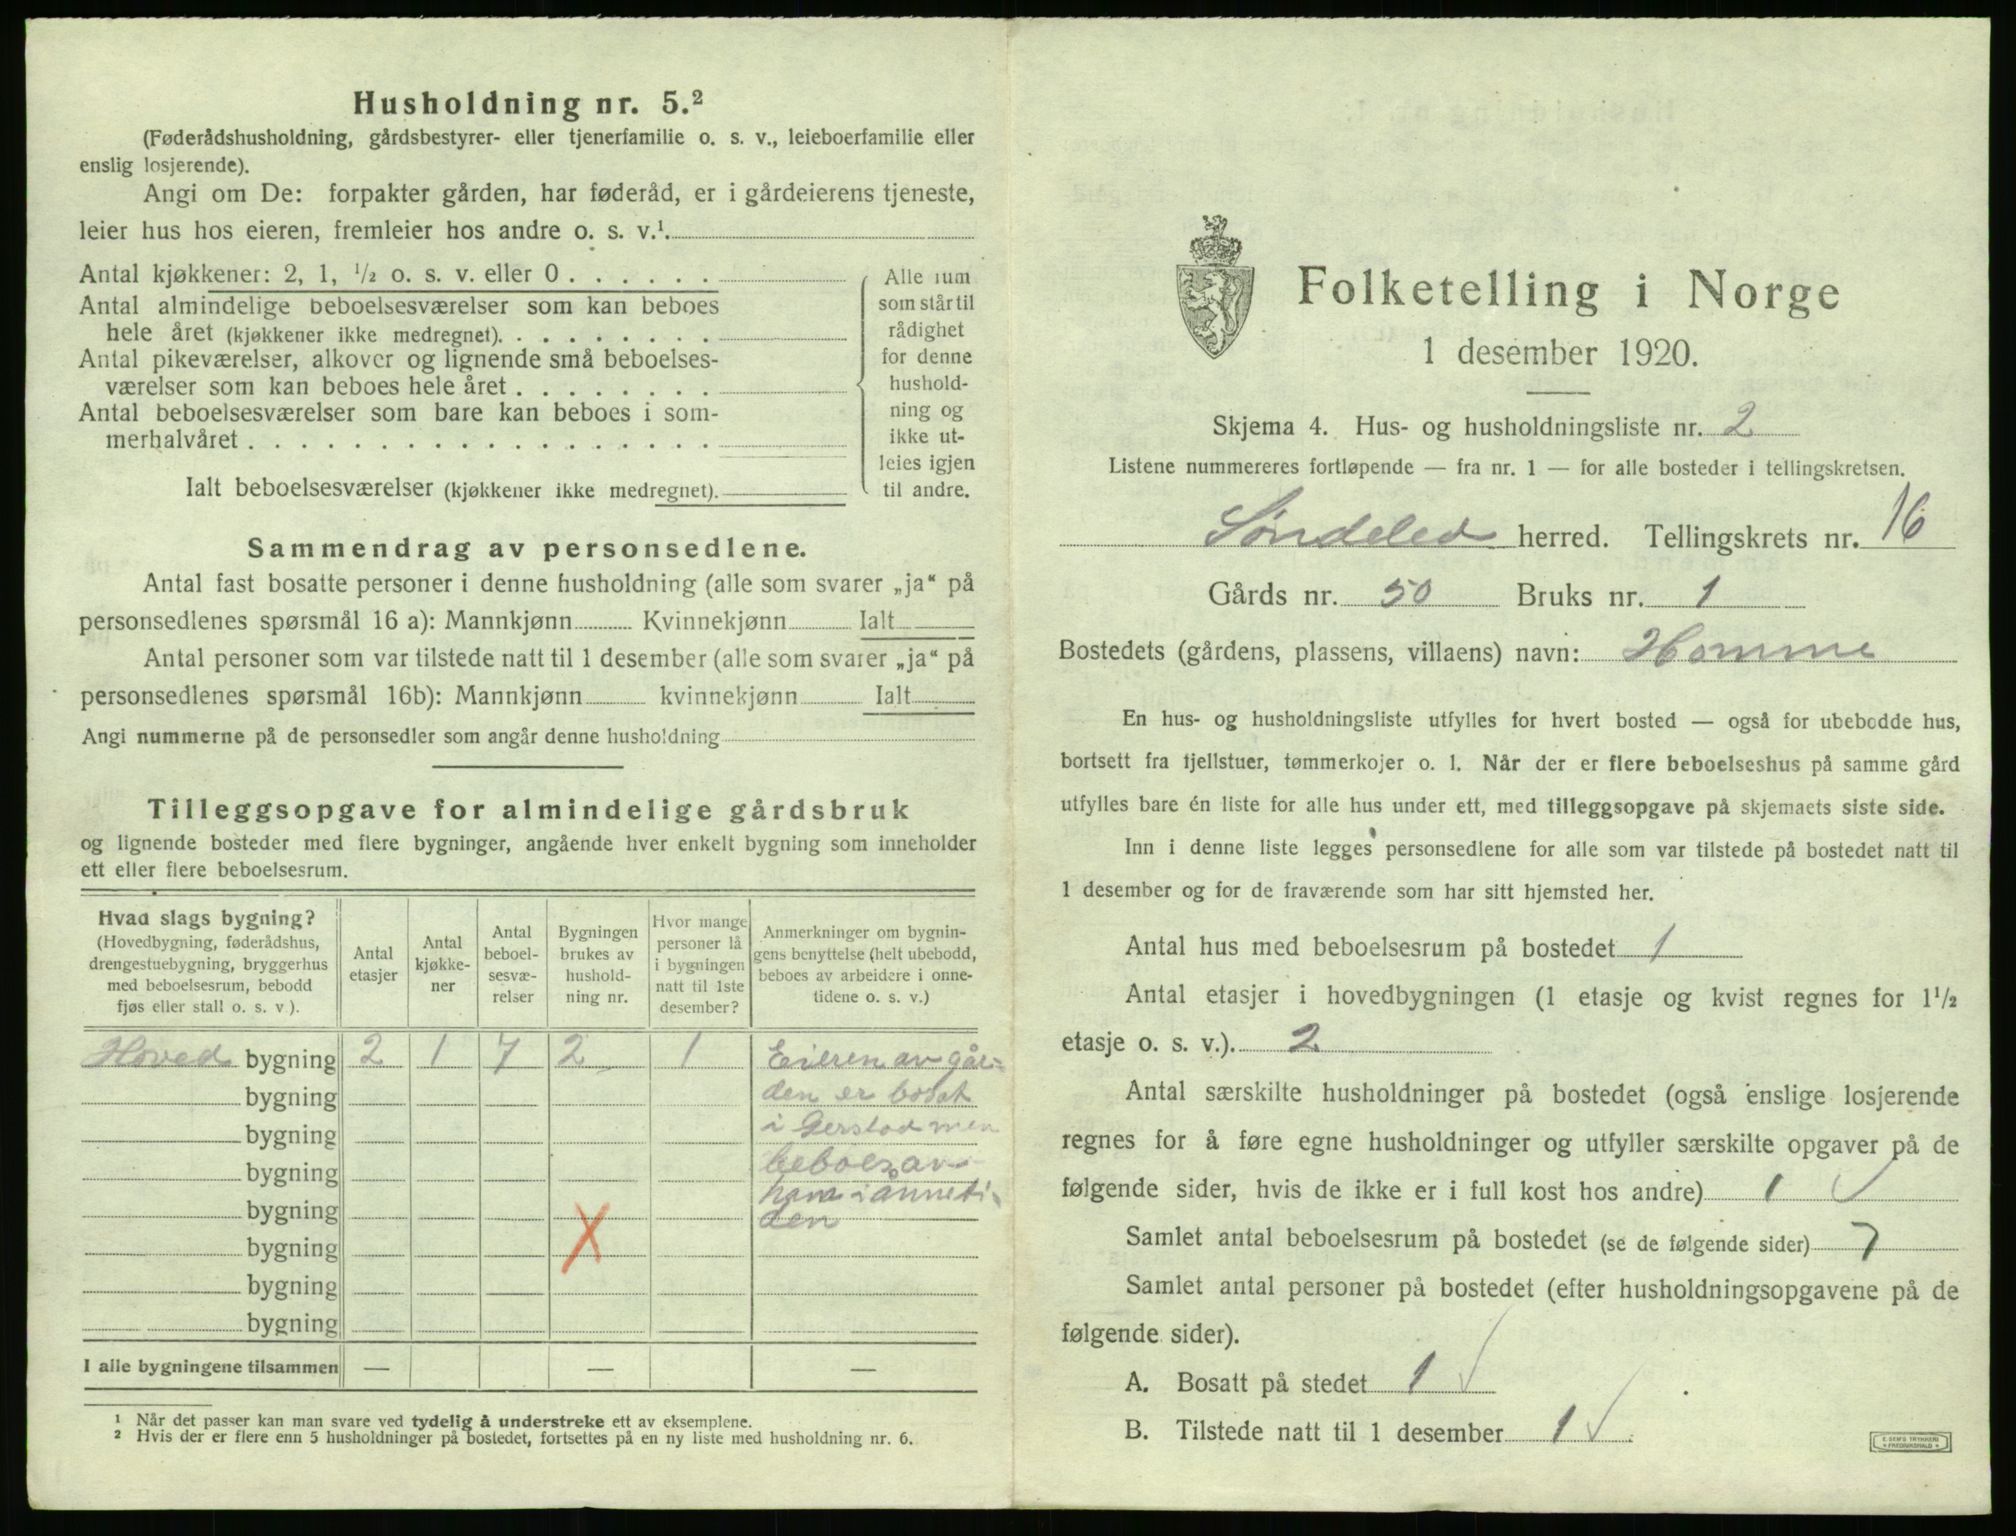 Husholdning nr. 5.²
(Føderådshusholdning, gårdsbestyrer- eller tjenerfamilie o. s. v., leieboerfamilie eller
enslig losjerende).
Angi om De: forpakter gården, har føderåd, er i gårdeierens tjeneste,
leier hus hos eieren, fremleier hos andre o. s. v.¹.
Antal kjøkkener: 2, 1, ½ o. s. v. eller 0 . . . . . .
Antal almindelige beboelsesværelser som kan beboes
hele året (kjøkkener ikke medregnet). . . . . . . . .
Antal pikeværelser, alkover og lignende små beboelses-
værelser som kan beboes hele året . . . . . . . .
Antal beboelsesværelser som bare kan beboes i som-
merhalvåret . . . . . . . . . . . . . . . . . .
Ialt beboelsesværelser (kjøkkener ikke medregnet).
Alle rum
som står til
rådighet
for denne
hushold-
ning og
ikke ut-
leies igjen
til andre.
Sammendrag av personsedlene.
Antal fast bosatte personer i denne husholdning (alle som svarer „ja“ på
personsedlenes spørsmål 16 a): Mannkjønn Kvinnekjønn Ialt
Antal personer som var tilstede natt til 1 desember (alle som svarer „ja“ på
personsedlenes spørsmål 16b): Mannkjønn kvinnekjønn Ialt
Angi nummerne på de personsedler som angår denne husholdning
Tilleggsopgave for almindelige gårdsbruk
og lignende bosteder med flere bygninger, angående hver enkelt bygning som inneholder
ett eller flere beboelsesrum.
Hvad slags bygning?
(Hovedbygning, føderådshus,
drengestuebygning, bryggerhus
med beboelsesrum, bebodd
fjøs eller stall o. s. v ).
Antal
etasjer
Antal
kjøkke-
ner
Antal
beboel-
sesvæ-
relser
Bygningen
brukes av
hushold-
ning nr.
Hvor mange
personer lå
i bygningen
natt til 1ste
desember?
Anmerkninger om bygnin-
gens benyttelse (helt ubebodd,
beboes av arbeidere i onne-
tidene o. s. v.)
Hoved bygning 2 1 7 2 1 Eieren av går-
bygning den er bosat
bygning i Gerstad men
bygning beboes av
bygning ham i ånneti-
den
bygning
bygning
bygning
I alle bygningene tilsammen — — —
¹ Når det passer kan man svare ved tydelig å understreke ett av eksemplene.
² Hvis der er flere enn 5 husholdninger på bostedet, fortsettes på en ny liste med husholdning nr. 6.
Folketelling i Norge
1 desember 1920.
Skjema 4. Hus- og husholdningsliste nr. 2
Listene nummereres fortløpende — fra nr. 1 — for alle bosteder i tellingskretsen.
Søndeled herred. Tellingskrets nr. 16
Gårds nr. 50 Bruks nr. 1
Bostedets (gårdens, plassens, villaens) navn: Homme
En hus- og husholdningsliste utfylles for hvert bosted — også for ubebodde hus,
bortsett fra fjellstuer, tømmerkojer o. l. Når der er flere beboelseshus på samme gård
utfylles bare én liste for alle hus under ett, med tilleggsopgave på skjemaets siste side.
Inn i denne liste legges personsedlene for alle som var tilstede på bostedet natt til
1 desember og for de fraværende som har sitt hjemsted her.
Antal hus med beboelsesrum på bostedet 1
Antal etasjer i hovedbygningen (1 etasje og kvist regnes for 1½
etasje o. s. v.). 2
Antal særskilte husholdninger på bostedet (også enslige losjerende
regnes for å føre egne husholdninger og utfyller særskilte opgaver på de
følgende sider, hvis de ikke er i full kost hos andre) 1 ✓
Samlet antal beboelsesrum på bostedet (se de følgende sider) 7
Samlet antal personer på bostedet (efter husholdningsopgavene på de
følgende sider).
A. Bosatt på stedet 1 ✓
B. Tilstede natt til 1 desember 1 ✓
E. SEM'S TRYKKERI
FREDRIKSHALD